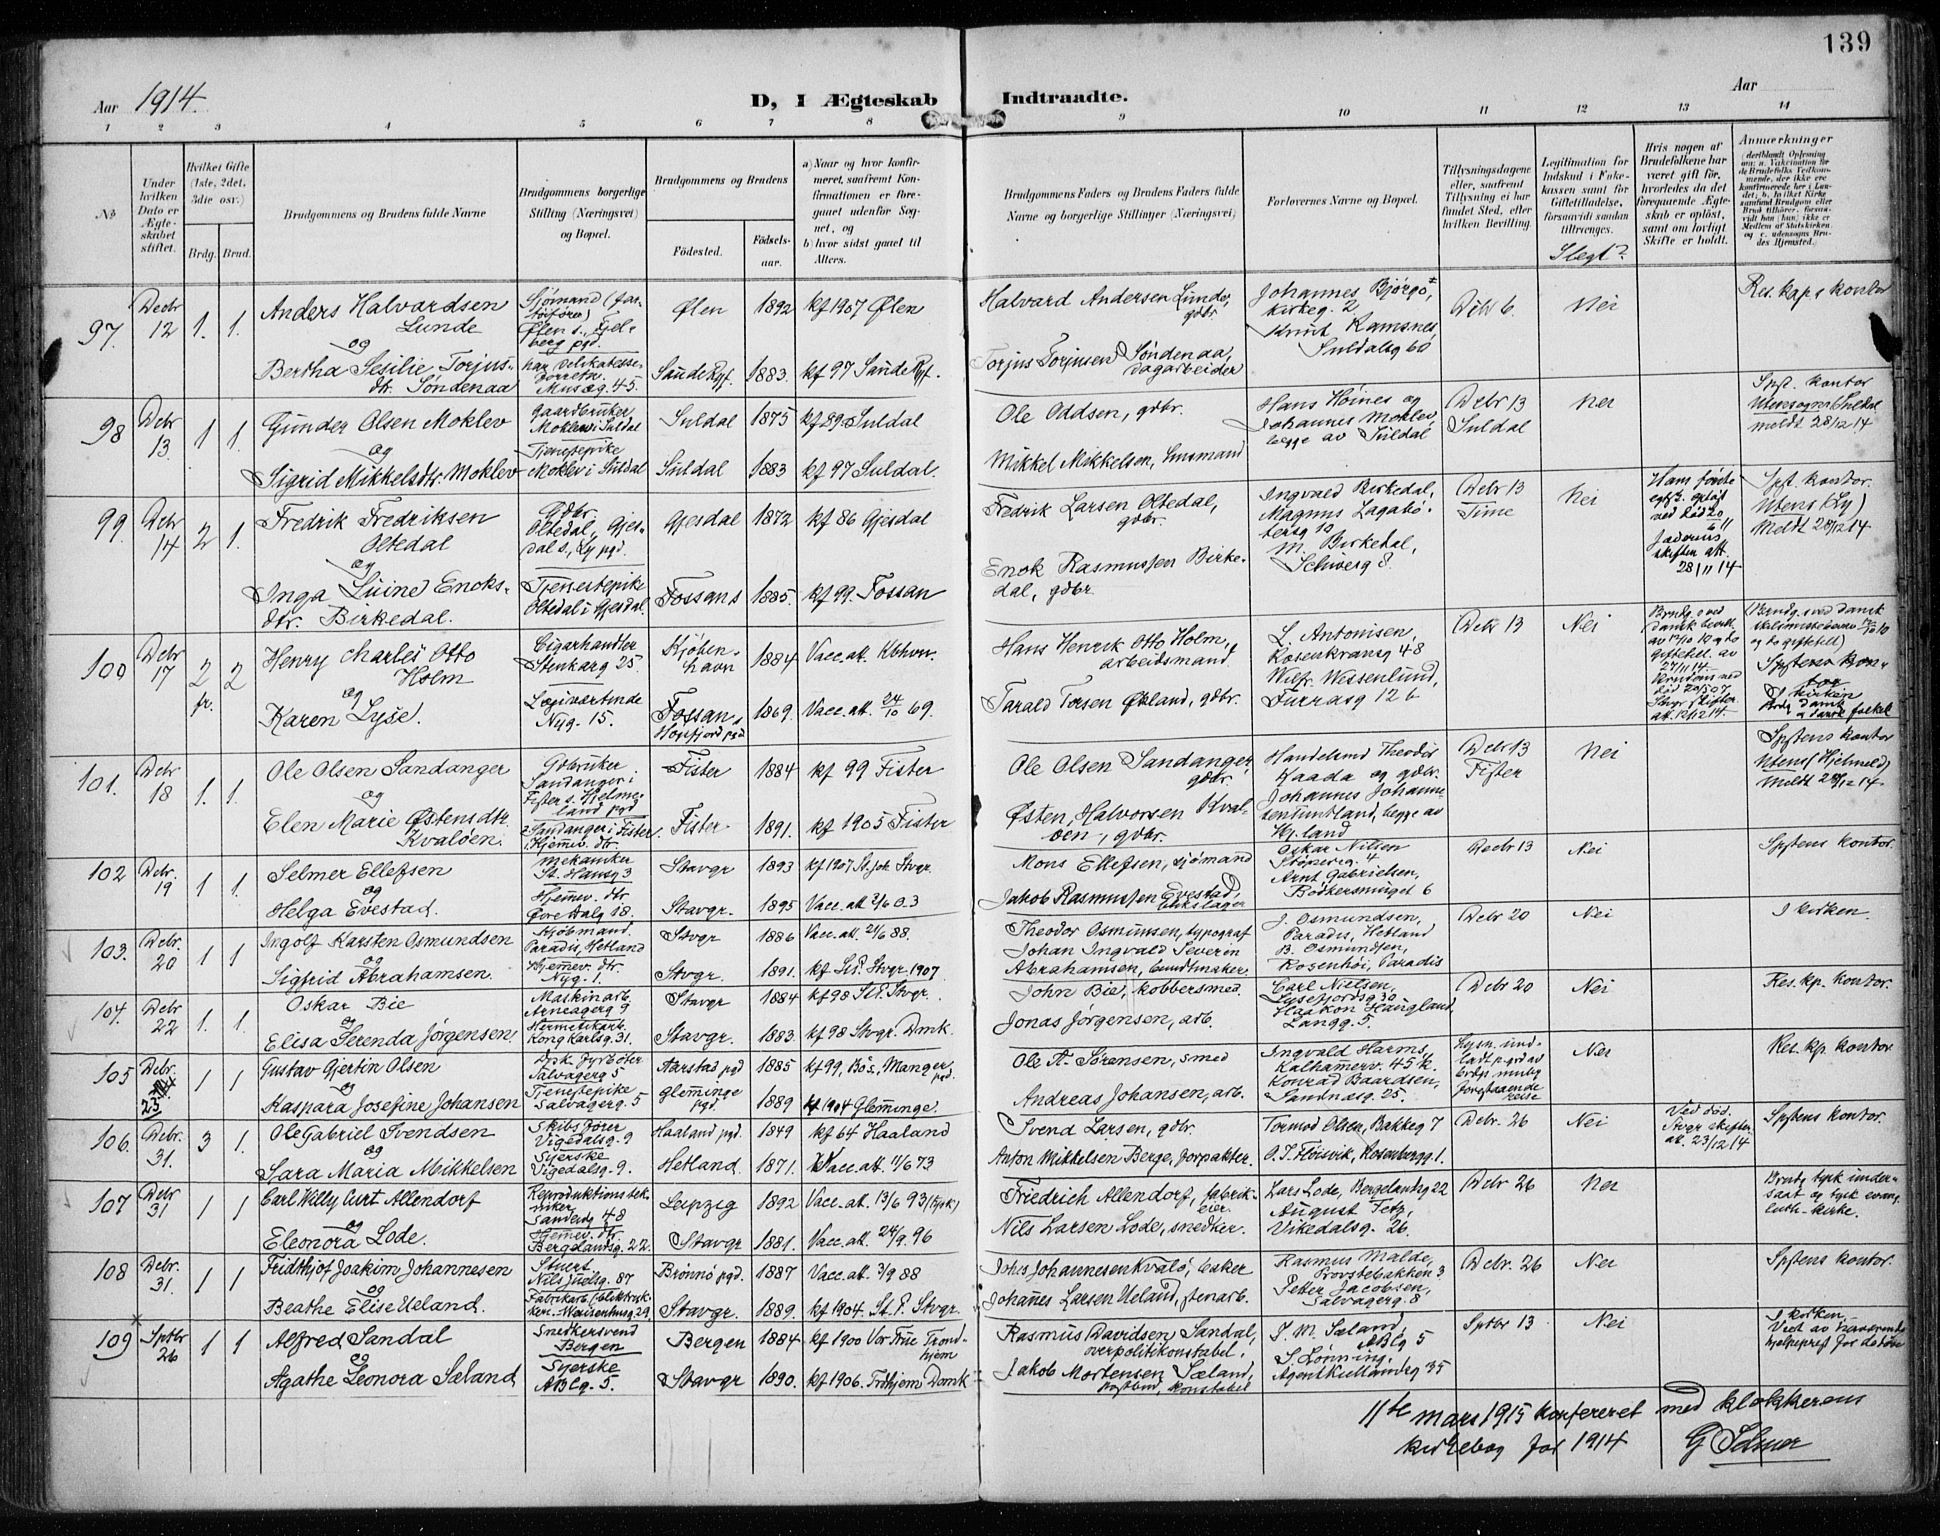 139
Aar 1914.
D, I Ægteskab Indtraadte.
Aar
1 2 3 4 5 6 7 8 9 10 11 12 13 14
No
Under hvilken Dato er Ægteskabet stiftet.
Hvilket Gifte (1ste, 2det, 3die osv.)
Brdg. Brud.
Brudgommens og Brudens fulde Navne
Brudgommens borgerlige Stilling (Næringsvei) og Bopæl.
Brudgommens og Brudens
Fødested.
Fødsels-aar.
a) Naar og hvor konfirmeret, saafremt Konfirmationen er foregaaet udenfor Sognet, og
b) hvor sidst gaaet til Alters.
Brudgommens Faders og Brudens Faders fulde Navne og borgerlige Stillinger (Næringsvei)
Forlovernes Navne og Bopæl.
Tillysningsdagene eller, saafremt Tillysning ei har fundet Sted, efter hvilken Bevilling.
Legitimation for Indskud i Enkekassen samt for Giftetilladelse, forsaavidt saadan tiltrænges.
Slegt?
Hvis nogen af Brudefolkene har været gift før, hvorledes da det foregaaende Ægteskab er opløst, samt om lovligt Skifte er holdt.
Anmerkninger
97. Decbr 12 1. 1. Anders Halvardsen Lunde
Ølen s., Fjelberg pgd.
Ølen 1892 kf 1907 Ølen
Halvard Andersen Lunde, gdbr.
Johannes Bjørgo, Kirkeg. 2
Knut Ramsnes Suldalsg 60
Debr 6. Nei Res. kaps kontor
og
Bertha Sesilie Torjusdtr. Søndenaa
har Delikatesseforretn. Musæg. 45
Sande Ryf. 1883. kf 97 Sande Ryf.
Torjus Torjusen Søndenaa, dagarbeider
98 Debr 13 1 1 Gunder Olsen Moklev
Gaardbruker Moklev i Suldal
Suldal 1875 kf 89 Suldal
Ole Oddsen, gdbr.
Hans Høines og Johannes Moklev, begge av Suldal
Debr 13 Suldal Nei
Spst. kontor
Utensogns (Suldal meldt 28/12 14
og
Sigrid Mikkelsdtr. Moklev
Tjenestepike Moklev i Suldal
Suldal 1883 kf 97 Suldal.
Mikkel Mikkelsen, husmand
99. Debr 14 2 1. Fredrik Fredriksen Oltedal
Gdbr. Oltedal, Gjesdal s., Ly pgd.
Gjesdal 1872 kf 86 Gjesdal
Fredrik Larsen Oltedal, gdbr.
Ingvald Birkedal, Magnus Lagabøtersg 10
M. Birkedal, Schivesg 8.
Debr 13 Time Nei
Jæderens skifteratt. 28/11 14
Spst. kontor.
Utens (Ly)
Meldt 28/12 14
og
Inga Luine Enoksdtr. Birkedal.
Tjenestepike Oltedal i Gjesdal.
Fossan s 1885. kf 99. Fossan
Enok Rasmussen Birkedal, gdbr.
100 Debr 17 2 fr. 2 Henry Charles Otto Holm
Cigarhandler Stenkarg 25
Kjøbenhavn 1884 Vacc. att. Kbhvn.
Hans Henrik Otto Holm, arbeidsmand.
L. Antonisen, Rosenkransg 48
Wilh. Wessenlund, Furrasg 126
Debr 13 Nei
og
Karen Lyse.
Nyg. 15.
Fossan s Høgsfjord pgd 1869. Vacc. att. 24/10 69.
Tarald Torsen Øbland, gdbr.
Spstens kontor
101. Debr 18 1. 1. Ole Olsen Sandanger
Gdbruker Sandanger i Fister s. Hjelmeland pgd
Fister 1884 kf 99 Fister
Ole Olsen Sandanger gdbr.
Handelsmd Theodor Kaada og gdbr. Johannes Johannessen Tuntland, begge av Hj.land
Debr 13 Fister Nei
Spstens kontor
Utens (Hjelmeld)
meldt 28/12 14
og
Elen Marie Østensdtr Kvaløen.
Sandanger i Fister. Hjemmev. dtr.
Fister. 1891. kf 1905 Fister
Østen Halvorsen Kvaløen, gdbr.
102 Debr. 19 1 1. Selmer Ellefsen
Mekaniker St. Hansg 3
Stavgr 1893 kf 1907 St. Joh. Stvgr.
Mons Ellefsen, sjømand
Oskar Nilsen Støperig. 4
Arnt Gabrielsen, Bødkersmuget 6
Decbr 13 Nei Spstens kontor.
og
Helga Evestad.
Hjemmev. dtr Øvre Dalg 18.
Stavgr. 1895 Vacc. att 2/6 03
Jakob Rasmussen Evestad, blikslager
103. Debr. 20 1 1 Ingolf Karsten Osmundsen
Kjøbmand. Paradis, Hetland
Stvgr 1886 Vacc. att. 21/6 88.
Theodor Osmunsen, typograf
J. Osmundsen, Paradis, Hetland
B. Osmundsen, Rosenhøi, Paradis
Debr 20 Nei I kirken.
og
Sigfrid Abrahamsen.
Hjemmev. dtr. Nyg. 1.
Stvgr. 1891. kf St. P. Stvgr. 1907
Johan Ingvald Severin Abrahamsen, buntmaker.
104. Debr. 22 1. 1. Oskar Bie
Maskinarb. Arneagerg 9
Stavgr 1884 kf 98 St. P. Stvgr.
John Bie, kobbersmed.
Carl Nielsen, Lysefjordsg 30
Haakon Haugland, Langg. 5.
Debr 20 Nei Res. kp. kontor.
og
Elisa Serenda Jørgensen.
Hermetikarb. Kong Karlsg. 31.
Stavgr. 1883. kf 98 Stvgr. Dmk.
Jonas Jørgensen, arb.
105 Debr. 23 1 1 Gustav Gjertin Olsen
Dpsk. fyrbøter Salvagerg 5
Aarstad pgd 1885 kf 99, Bøs., Manger pgd.
Ole A. Sørensen, smed
Ingvald Harms, Kalhamerv. 45 K.
Konrad Baardsen, Sandnæsg. 25.
Nei Res. kp. kontor.
og
Kaspara Josefine Johansen
Tjenestepike Salvagerg. 5
Glemminge pgd. 1889 kf 1904 Glemminge.
Andreas Johansen, arb.
106. Debr. 31. 3 1. Ole Gabriel Svendsen
Skibsfører Vigedalsg. 9
Haaland pgd. 1849 kf 64 Haaland
Svend Larsen, gdbr.
Tormod Olsen, Bakkeg 7
O. T. Høisvik, Rosenbergg 1.
Debr. 26 Nei
Ved død. Stvgr skifteratt. 23/12 14
Spstens kontor.
og
Sara Maria Mikkelsen
Syerske Vigedalsg. 9.
Hetland. 1871. Vacc. att. 11/6 73
Anton Mikkelsen Berge, forpakter.
107 Debr 31 1 1 Carl Willy Curt Allendorf
Reproduktionstekniker Sandeidg 48
Leipzig 1892 Vacc. att. 13/6 93 (tysk)
Friedrich Allendorf, fabrikeier.
Lars Lode, Bergelandsg 22
August Tetz, Vikedalsg. 26.
Debr 26 Nei
Brudg tysk undersaat og tysk evang. luth. kirke.
og
Eleonora Lode.
Hjemmev. dtr. Bergelandsg. 22.
Stavgr 1881. Vacc. att. 24/9. 96
Nils Larsen Lode, snedker.
108 Debr. 31. 1 1 Fridthjof Joakim Johannesen
Stuert. Nils Juelsg. 87
Brønnø pgd. 1887 Vacc. att. 3/9 88
Johs Johannesen Kvalø, bøker
Rasmus Malde, Provstebakken 3
Petter Jacobsen, Salvagerg. 8
Debr. 26 Nei Spstens kontor.
og
Beathe Elise Ueland.
Stavgr. 1889. kf 1904. St. P. Stvgr.
Johannes Larsen Ueland, stenarb.
109 Sptbr 26 1 1 Alfred Sandal
Snedkersvend Bergen
Bergen 1884 kf 1900 Vor Frue Trondhjem
Rasmus Davidsen Sandal, overpolitikonstabel.
J. M. Sæland, ABCg 5
S. Lønning, Agent Kiellandsg 35
Sptbr 13 Nei
I kirken.
og
Agathe Leonora Sæland
Syerske ABCg. 5.
Stavgr 1890. kf 1906. Trdhjem Domk
Jakob Mortensen Sæland, konstabel
11te mars 1915 konfereret med klokkerens
kirkebog for 1914 G Selmer